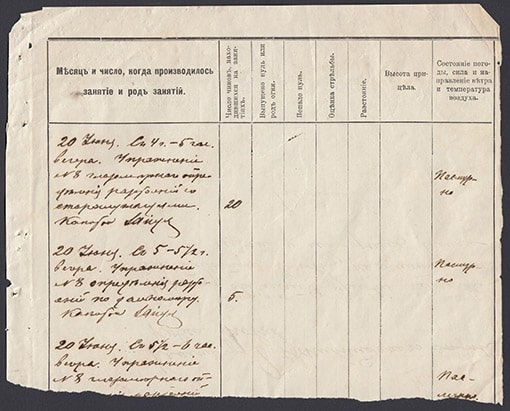 Мѣсяцъ и число, когда производилось
занятіе и родъ занятій.
Число чиновъ, нахо-
дившихся на заня-
тіяхъ.
Выпущено пуль или
родъ огня.
Попало пуль.
Оцѣнка стрѣльбы.
Разстояніе.
Высота при-
цѣла.
Состояніе пого-
ды, сила и на-
правленіе вѣтра
и температура
воздуха.
20 Іюня. Съ 4 г.–5 час.
вечера. Упражненіе
№ 8 глазомѣрнаго опре-
дѣленія разстояній со
старослужащими.
20
Пасмур-
но
20 Іюня. Съ 5–5½ г.
вечера. Упражненіе
№ 8 опредѣленія разст-
ояній по дальномѣру.
5.
Пасмур-
но
20 Іюня. Съ 5½–6 час.
вечера. Упражненіе
№ 8 глазомѣрнаго оп-
Пас-
мурно